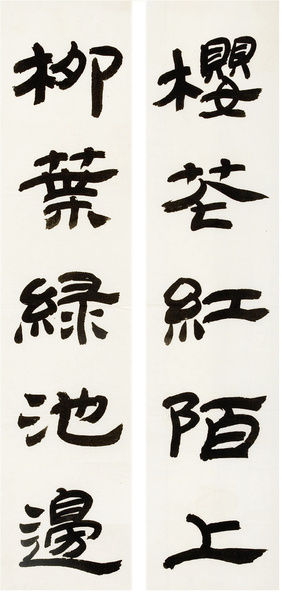 櫻花紅陌上
柳葉綠池邊